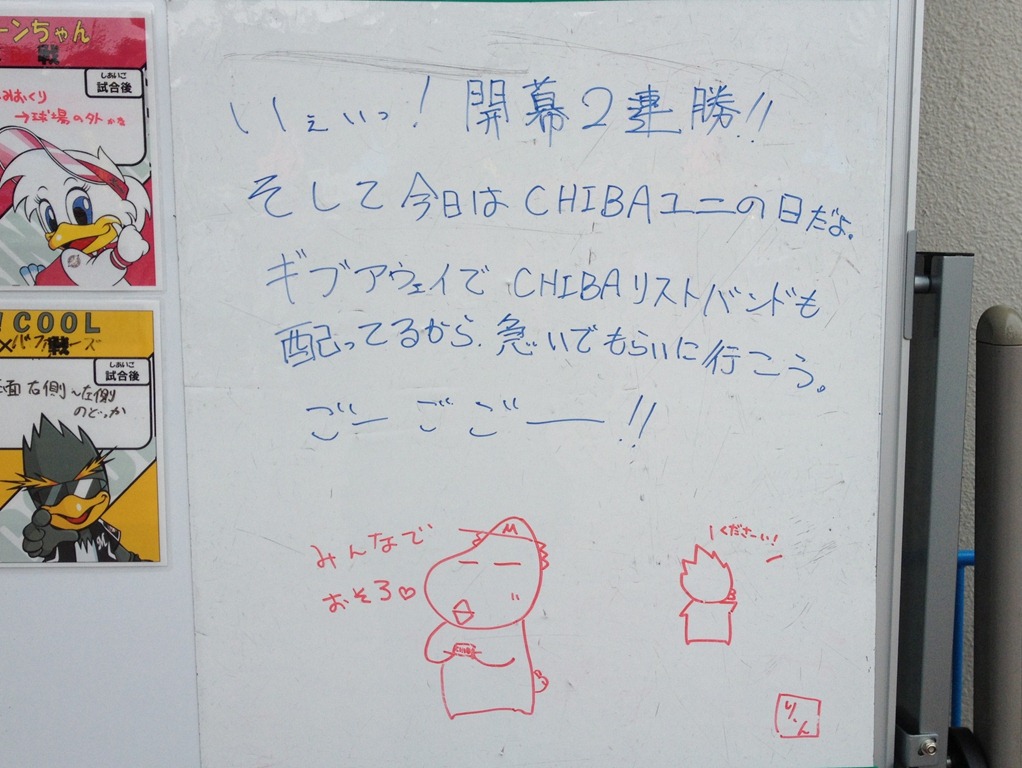 ーンちゃん
戦
しあいご
試合後
みおくり
→球場の外かな
!COOL
×バファローズ
戦
しあいご
試合後
正面右側~左側
のどっか
いぇいっ!開幕2連勝!!
そして今日はCHIBAユニの日だよ。
ギブアウェイでCHIBAリストバンドも
配ってるから、急いでもらいに行こう。
ごーごごー!!
みんなで
おそろ♡
M
くださーい!
りん